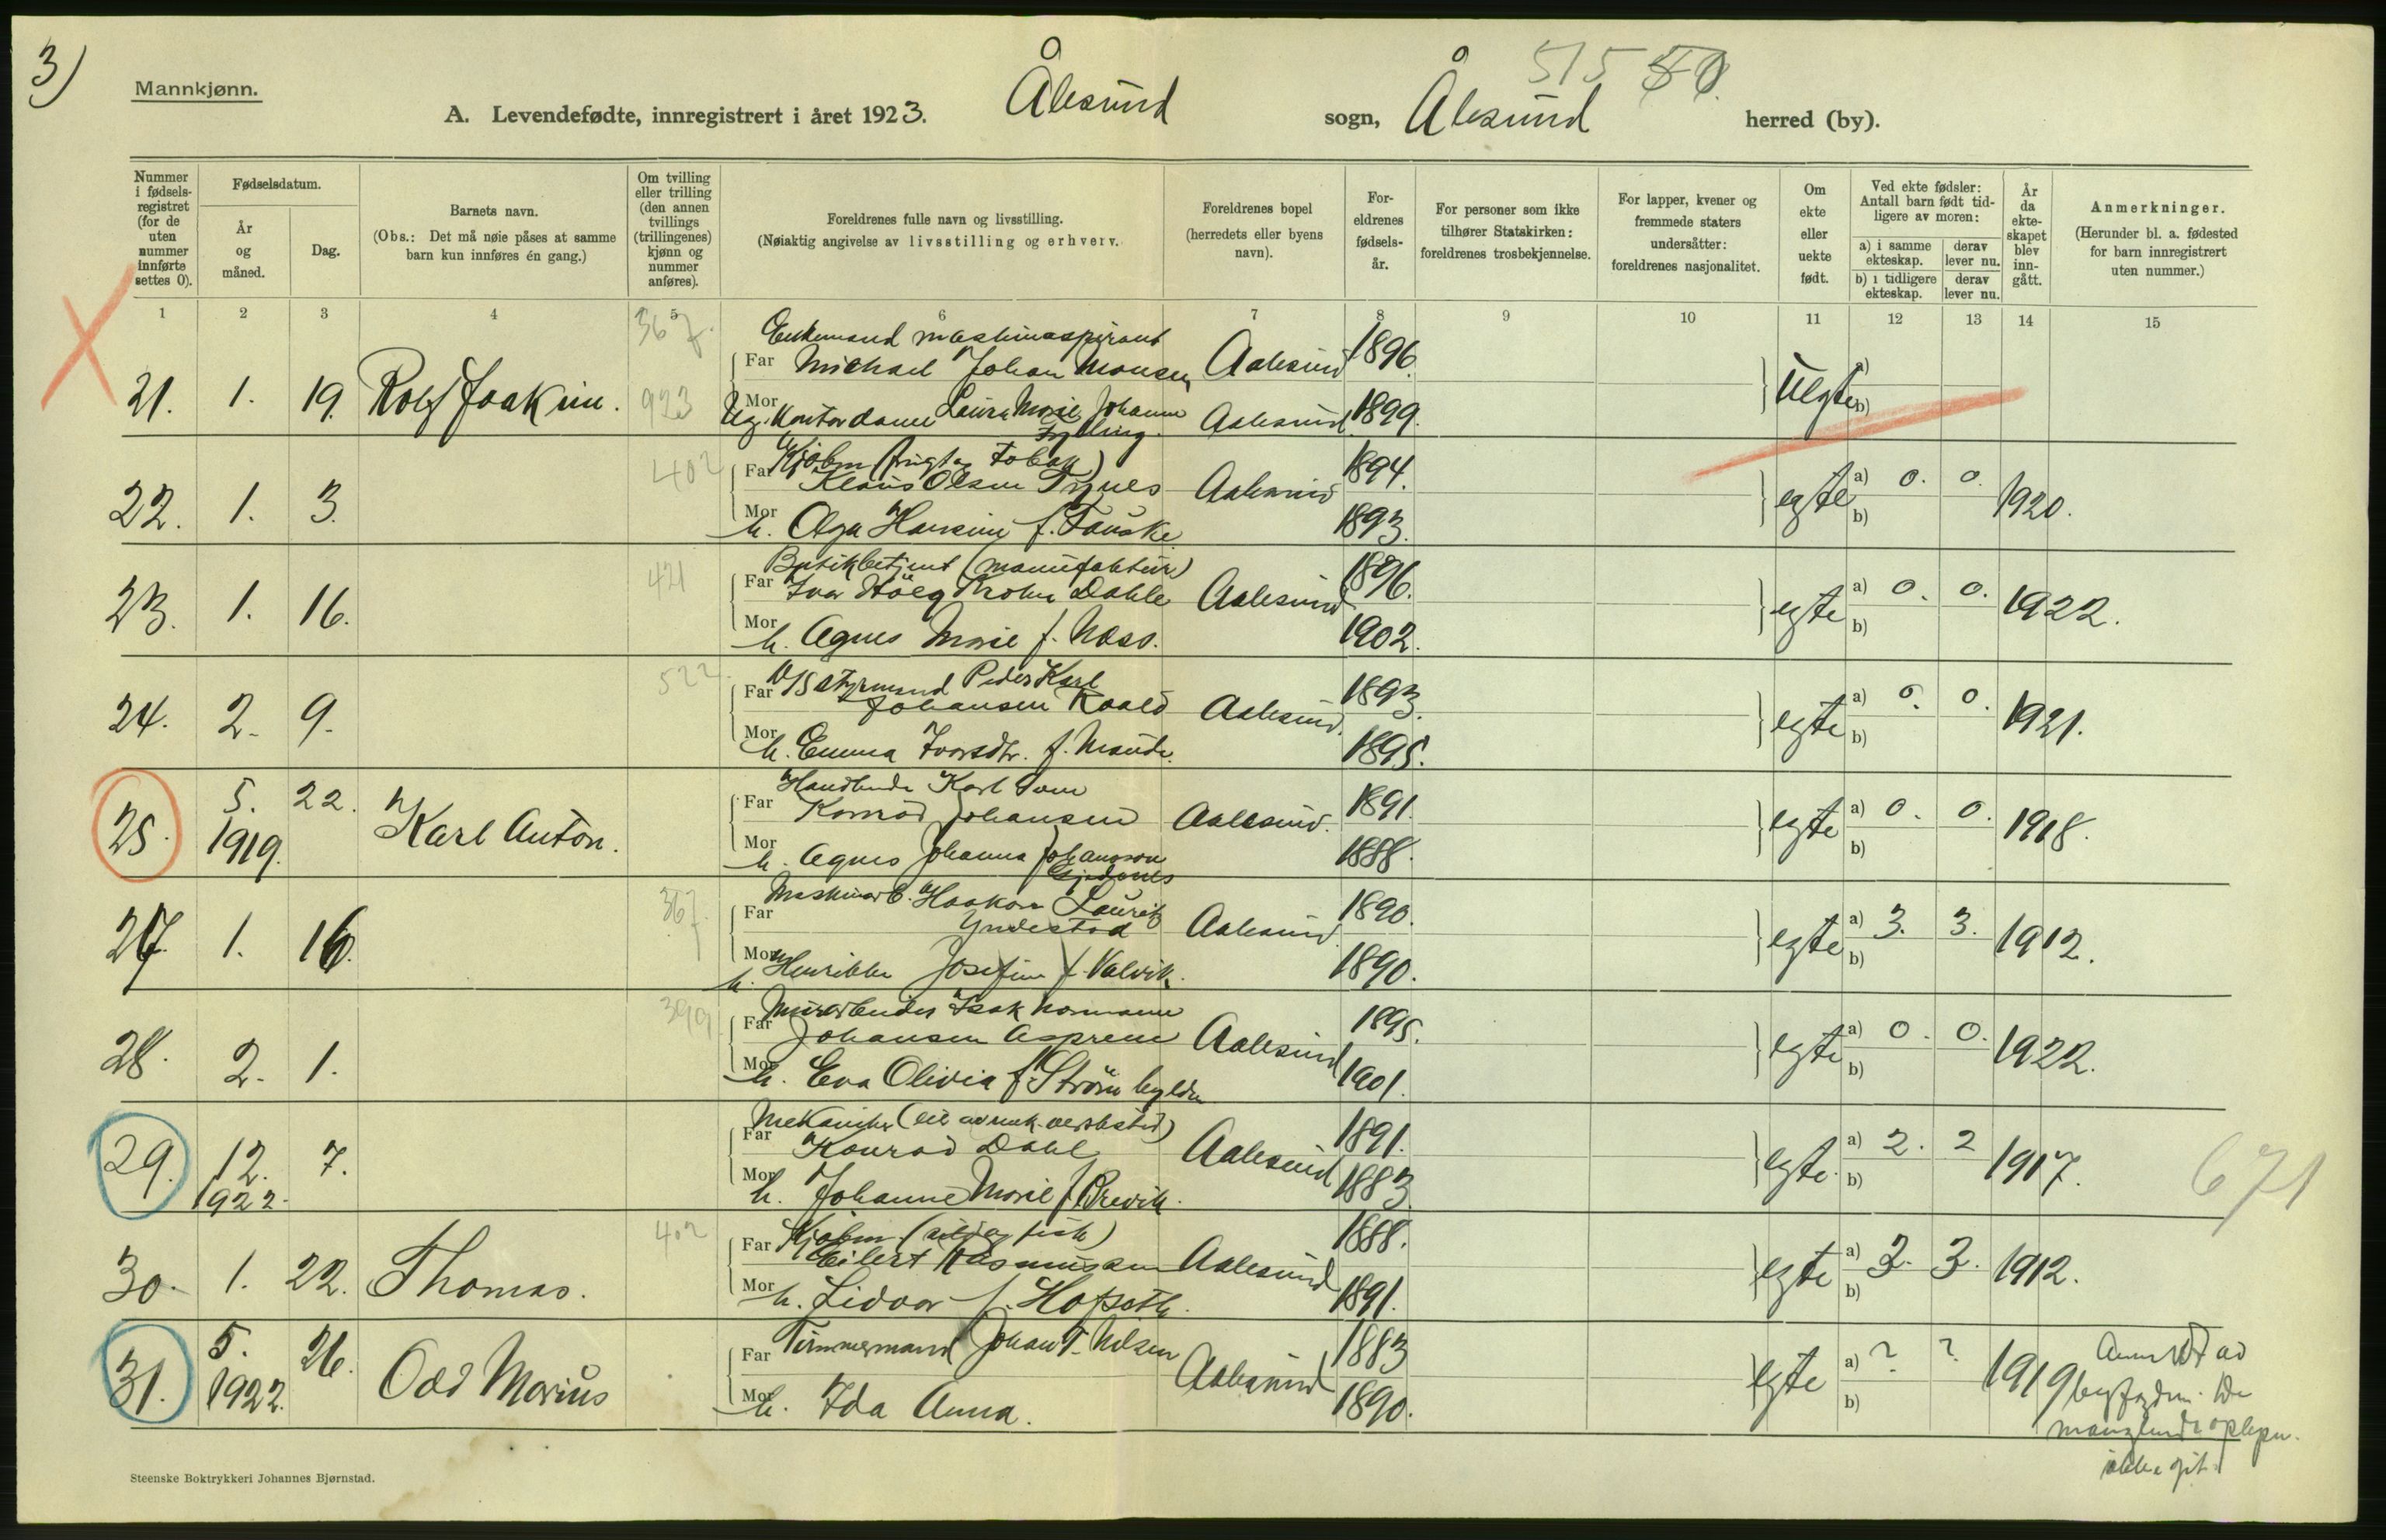 3)
515 50.
Mannkjønn.
A. Levendefødte, innregistrert i året 1923. Ålesund sogn, Ålesund herred (by).
Nummer i fødsels-registret (for de uten nummer innførte settes 0).
Fødselsdatum.
År og måned.
Dag.
Barnets navn.
(Obs.: Det må nøie påses at samme barn kun innføres én gang.)
Om tvilling eller trilling (den annen tvillings (trillingenes) kjønn og nummer anføres).
Foreldrenes fulle navn og livsstilling.
(Nøiaktig angivelse av livsstilling og erhverv.
Foreldrenes bopel (herredets eller byens navn).
For-eldrenes fødsels-år.
For personer som ikke tilhører Statskirken: foreldrenes trosbekjennelse.
For lapper, kvener og fremmede staters undersåtter: foreldrenes nasjonalitet.
Om ekte eller uekte født.
Ved ekte fødsler: Antall barn født tid-ligere av moren:
a) i samme ekteskap.
derav lever nu.
b) i tidligere ekteskap.
derav lever nu.
År da ekte-skapet blev inn-gått.
Anmerkninger.
(Herunder bl. a. fødested for barn innregistrert uten nummer.)
1 2 3 4 5 6 7 8 9 10 11 12 13 14 15
367.
Enkemand maskinaspirant
Far Michael Johan Monsen Aalesund 1896.
21. 1. 19. Rolf Joakim. 923 Uegte a) b)
Mor Ug. Kontordame Laura Marie Johanne Fylling. Aalesund 1899.
402
Kjøbm (frugt og Tobak)
Far Klaus Olsen Synes Aalesund 1894.
22. 1. 3. egte a) 0. 0. b) 1920.
Mor h. Olga Hansine f. Fauske 1893.
421
Butikbetjent (manufaktur)
Far Ivar Høeg Krohn Dahle Aalesund 1896.
23. 1. 16. egte a) 0. 0. b) 1922.
Mor h. Agnes Marie f. Næss. 1902.
522
D/S Styrmand Peder Karl
Far Johansen Roald Aalesund. 1893.
24. 2. 9. egte a) 0. 0. b) 1921.
Mor h. Emma Ivarsdtr. f. Mande. 1895.
Handlende Karl
Far Konrad Johansen Aalesund. 1891.
25. 5. 1919. 22. Karl Anton. egte a) 0. 0. b) 1918.
Mor h. Agnes Johanna Johansson 1888.
367.
Maskinarb. Haakon Lauritz
Far Yndestad Aalesund 1890.
27. 1. 16. egte a) 3. 3. b) 1912.
Mor h. Henrikke Josefine f. Valvik. 1890.
399
Murarbeider Isak Normann
Far Johansen Asprem Aalesund 1895.
28. 2. 1. egte a) 0. 0. b) 1922.
Mor h. Eva Olivia f. Strømhylden 1901.
Mekaniker (eier av mek. verksted)
Far Konrad Dahl Aalesund 1891.
29. 12. 1922. 7. egte. a) 2. 2 b) 1917. 671
Mor h. Johanne Marie f. Brevik. 1883
402
Kjøbm (sild og fisk)
Far Eilert Rasmussen Aalesund 1888.
30. 1. 22. Thomas. egte a) 3. 3. b) 1912.
Mor h. Lidvar f. Hofseth. 1891.
Far Tømmermand Johan T. Nilsen Aalesund 1883
31. 5. 1922. 26. Odd Marius egte a) ? ? b) 1919
Mor h. Ida Anna. 1890.
De
manglende oplysn.
ikke git.
Steenske Boktrykkeri Johannes Bjørnstad.